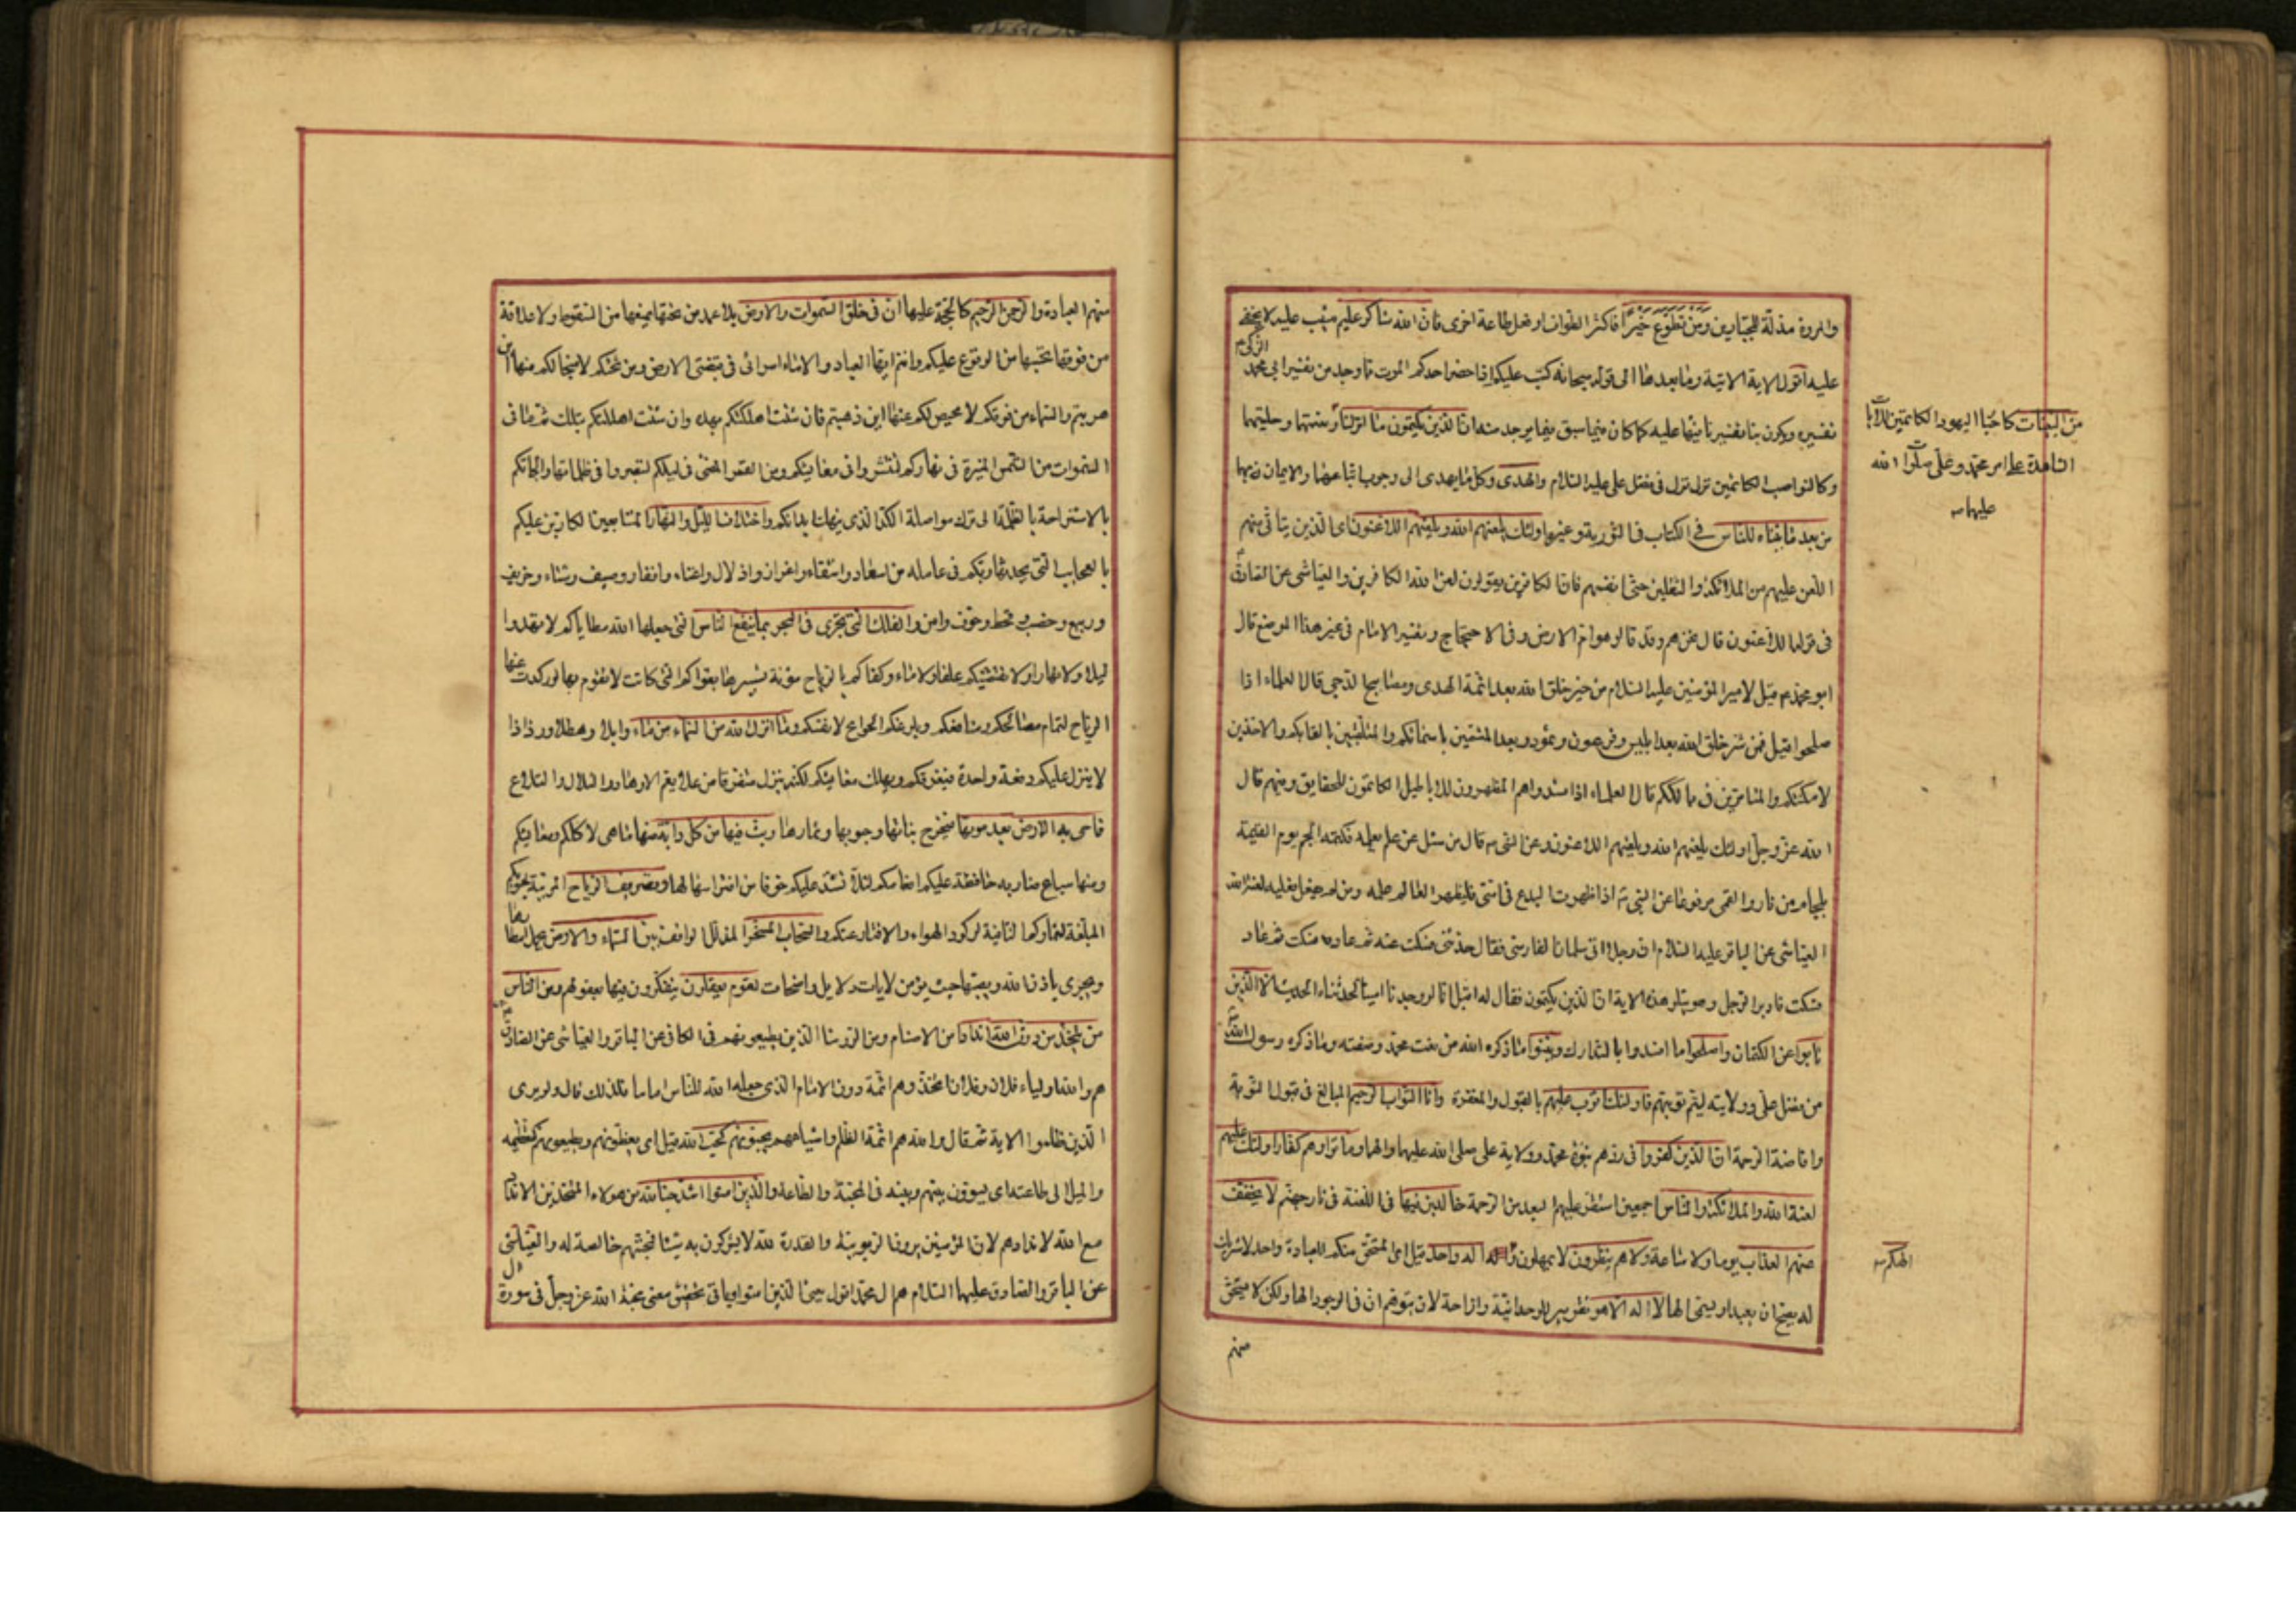 والمروة مذلة للجبارين ومن تطوع خيرا فاكثر الطواف او فعل طاعة اخرى فان الله شاكر عليم مثيب عليه لا يخفى
عليه اقول الاية الاتية وما بعدها الى قوله سبحانه كتب عليكم اذا حضر احدكم الموت ما وجد من تفسير ابي محمد الزكي
تفسيره ويكون بناء تفسيرنا فيها عليه كما كان فيما سبق فيما يوجد منه ان الذين يكتمون ما انزلنا وصفتها وحليتها
من البينات كاحبار اليهود الكاتمين للآيات
الشاهدة على امر محمد وعلي صلوات الله
عليهما
وكالنواصب الكاتمين ما نزل في فضل علي عليه السلام والهدى وكل ما يهدى الى وجوب اتباعهما والايمان بهما
من بعد ما بيناه للناس في الكتاب في التورية وغيرها اولئك يلعنهم الله ويلعنهم اللاعنون اى الذين يتأتى منهم
اللعن عليهم من الملائكة والثقلين حتى انفسهم فان الكافرين يقولون لعن الله الكافرين والعياشى عن الصادق
في قوله اللاعنون قال نحن هم وقد قالوا هوام الارض وفى الاحتجاج وتفسير الامام في غير هذا الموضع قال
ابو محمد قيل لامير المؤمنين عليه السلام من خير خلق الله بعد ائمة الهدى ومصابيح الدجى قال العلماء اذا
صلحوا قيل فمن شر خلق الله بعد ابليس وفرعون وثمود وبعد المتسمين باسمائكم والمتلقبين بالقابكم والاخذين
لامكنتكم والمتامرين في ممالككم قال العلماء اذا فسدوا هم المظهرون للاباطيل الكاتمون للحقايق وفيهم قال
الله عز وجل اولئك يلعنهم الله ويلعنهم اللاعنون وعن النبي قال من سئل عن علم يعلمه فكتمه الجم يوم القيمة
بلجام من نار والقمي مرفوعا عن النبي اذا ظهرت البدع في امتي فليظهر العالم علمه ومن لم يفعل فعليه لعنة الله
العياشى عن الباقر عليه السلام ان رجلا اتى سلمان الفارسى فقال حدثنى فسكت عنه ثم عاد فسكت ثم عاد
فسكت فادبر الرجل وهو يتلو هذه الاية ان الذين يكتمون فقال له اقبل انا لو وجدنا امينا لحدثناه الحديث الا الذين
تابوا عن الكتمان واصلحوا ما افسدوا بالتدارك وبينوا ما ذكره الله من نعت محمد وصفته وما ذكره رسول الله
من فضل علي وولايته ليتم توبتهم فاولئك اتوب عليهم بالقبول والمغفرة وانا التواب الرحيم المبالغ في قبول التوبة
وافاضة الرحمة ان الذين كفروا في ردهم نبوة محمد وولاية على صلى الله عليهما والهما وماتوا وهم كفار اولئك عليهم
لعنة الله والملائكة والناس اجمعين استقر عليهم البعد من الرحمة خالدين فيها في اللعنة في نار جهنم لا يخفف
عنهم العذاب يوما ولا ساعة ولا هم ينظرون لا يمهلون واله اله واحد قيل اى المستحق منكم للعبادة واحد لا شريك
الهكم
له يصح ان يعبد او يسمى الها لا اله الا هو تقرير للوحدانية وازاحة لان يتوهم ان في الوجود الها ولكن لا يستحق
منهم
منهم العبادة والرحمن الرحيم كالحجة عليها ان في خلق السموات والارض بلا عمد من تحتها يمنعها من السقوط ولا علاقة
من فوقها تحبسها من الوقوع عليكم وانتم ايها العباد والاماء اسرائى في قبضتى الارض من تحتكم لا منجا لكم منها اين
هربتم والسماء من فوقكم لا محيص لكم عنها اين ذهبتم فان شئت اهلكتكم بهذه وان شئت اهلكتكم بتلك ثم ما في
السموات من الشمس المنيرة في نهاركم لتنتشروا في معايشكم ومن القمر المضئ في ليلكم لتبصروا في ظلماتها والجائكم
بالاستراحة بالظلمة الى ترك مواصلة الكد الذى ينهك ابدانكم واختلاف الليل والنهار المتتابعين الكارين عليكم
بالعجايب التى يحدثها ربكم في عالمه من اسعاد واشقاء واعزاز واذلال واغناء وافقار وصيف وشتاء وخريف
وربيع وخصب وقحط وخوف وامن والفلك التى تجرى في البحر بما ينفع الناس التى جعلها الله مطاياكم لا تهدوا
ليلا ولا نهارا ولا تقتضيكم علفا ولا ماء وكفاكم بالرياح مؤنة تسييرها بقواكم التى كانت لا تقوم بها لو ركدت عنها
الرياح لتمام مصالحكم ومنافعكم وبلوغكم الحوائج لانفسكم وما انزل الله من السماء من ماء وابلا وهطلا ورذاذا
لا ينزل عليكم دفعة واحدة فيغرقكم ويهلك معايشكم لكنه ينزل متفرقا من علا يعم الاوهاد والتلال والتلاع
فاحيى به الارض بعد موتها فيخرج نباتها وحبوبها وثمارها وبث فيها من كل دابة منها ما هى لاكلكم ومعايشكم
ومنها سباع ضارية حافظة عليكم انعامكم لئلا تشذ عليكم خوفا من افتراسها لها وتصريف الرياح المربية لحبوبكم
المبلغة لثماركم النافية لركود الهواء والاقتار عنكم والسحاب المسخر المذلل الواقف بين السماء والارض يحمل امطارها
ويجرى باذن الله ويصبها حيث يؤمر لايات دلايل واضحات لقوم يعقلون يتفكرون فيها بعقولهم ومن الناس
من يتخذ من دون الله اندادا من الاصنام ومن الرؤساء الذين يطيعونهم في الكافي عن الباقر والعياشى عن الصادق
هم والله اولياء فلان وفلان اتخذوهم ائمة دون الامام الذى جعله الله للناس اماما فلذلك قال ولو يرى
الذين ظلموا الاية ثم قال والله هم ائمة الظلم واشياعهم يحبونهم كحب الله قيل اى يعظمونهم ويطيعونهم كتعظيمه
والميل الى طاعته اى يسوون بينهم وبينه في المحبة والطاعة والذين امنوا اشد حبا لله من هولاء المتخذين الانداد
مع الله لاندادهم لان المؤمنين يرون الربوبية والقدرة لله لا يشركون به شيئا فمحبتهم خالصة له والعياشى
عن الباقر والصادق عليهما السلام هم ال محمد اقول يعنى الذين امنوا وياتى تحقيق معنى محبة الله عز وجل في سورة ال